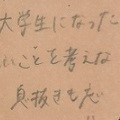 大学生になった
いことを考えな
息抜きも忘